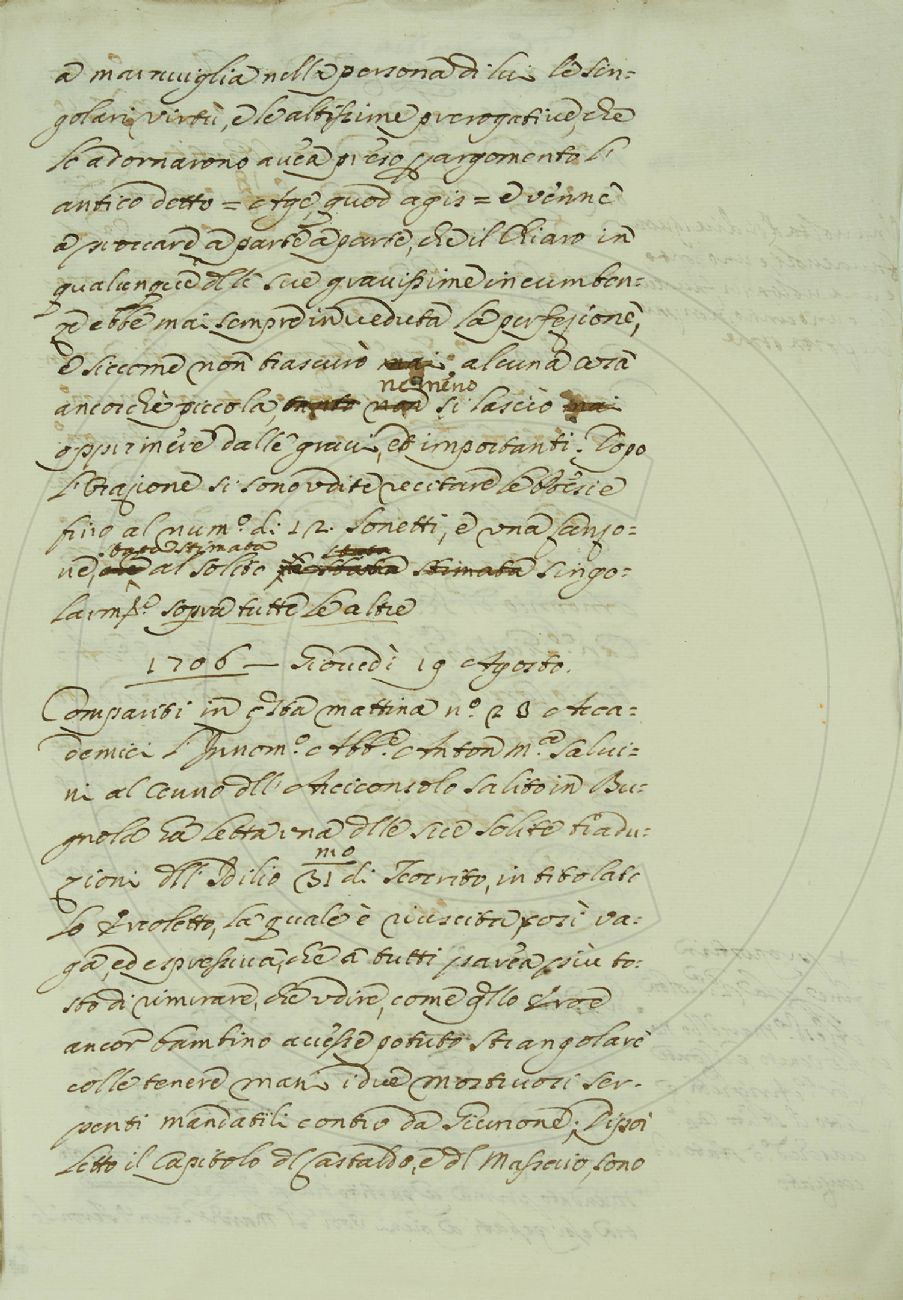 a maraviglia nella persona di lui le sin=
golari virtù, e le altissime prerogative, che
lo adornarono avea preso p argomento l'
antico detto = Age, quod agis = e venne
a toccare a parte a parte, che il Chiaro in
qualunque dlle sue gravissime incumben=
ze ebbe mai sempre in veduta la perfezione,
e siccome non trascurò mai alcuna cosa
nemeno
ancorchè piccola, tanto non si lasciò mai
opprimere dalle gravi, et importanti. Dopo
l'Orazione si sono udite recitare le Poesie
fino al num.º di 12. Sonetti, e una Canzo=
stata stimata stata
ne, che al solito fu stimata singo=
larm.e sopra tutte le altre
1706 — Giovedì 19 Agosto.
Comparsi in qsta mattina nº 23 Acca=
demici l'Innom.º Abb.e Anton M.a Salvi=
ni al cenno dll' Arciconsolo salito in Bu=
gnola ha letta una dlle sue solite tradu=
mo
zioni dll' Idilio 31 di Teocrito, intitolato
lo Ercoletto, la quale è riuscita così va=
ga, ed espressiva, che a tutti parea più to=
sto di rimirare, che udire, come qllo Eroe
ancor bambino avesse potuto strangolare
colle tenere mani i due mostruosi ser=
penti mandatili contro da Giunone; Dipoi
letto il Capitolo dl Castaldo, e dl Massaio, sono